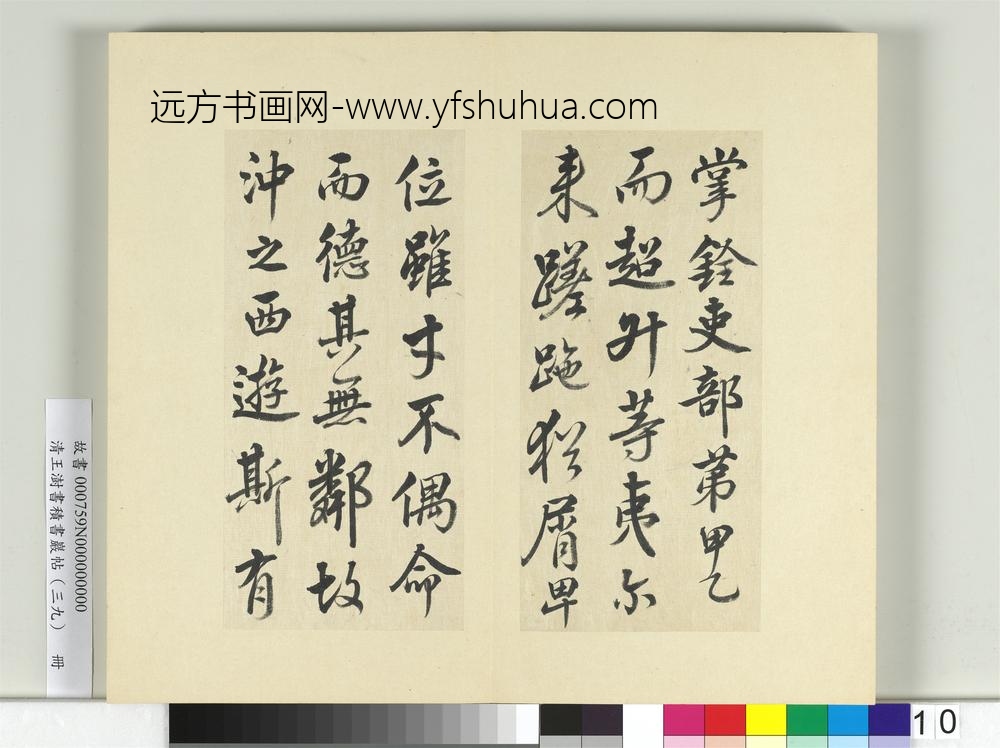 远方书画网-www.yfshuhua.com
掌銓吏部第甲乙
而超升等夷尔
来蹉跎猶屑卑
位雖才不偶命
而德其無鄰故
沖之西遊斯有
故書 000759N000000000
清王澍書積書巖帖(三九) 冊
10